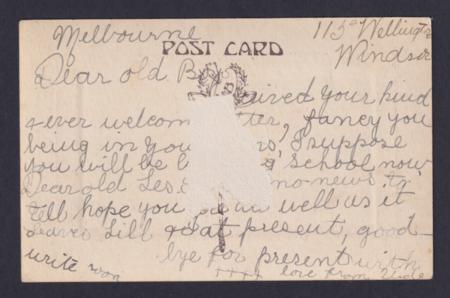 Melbourne
115a Wellington
POST CARD
Windsor
Dear old
your kind
& ever welcome fancy you
being in you suppose
you will be school now
Dear old Les no news to
tell hope you well as it
leaves Lill at present, good-
bye for present with
write soon
xxxx love from